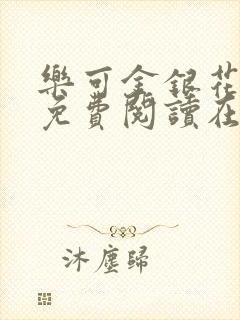 樂可金銀花
免費閱讀在
沐塵歸